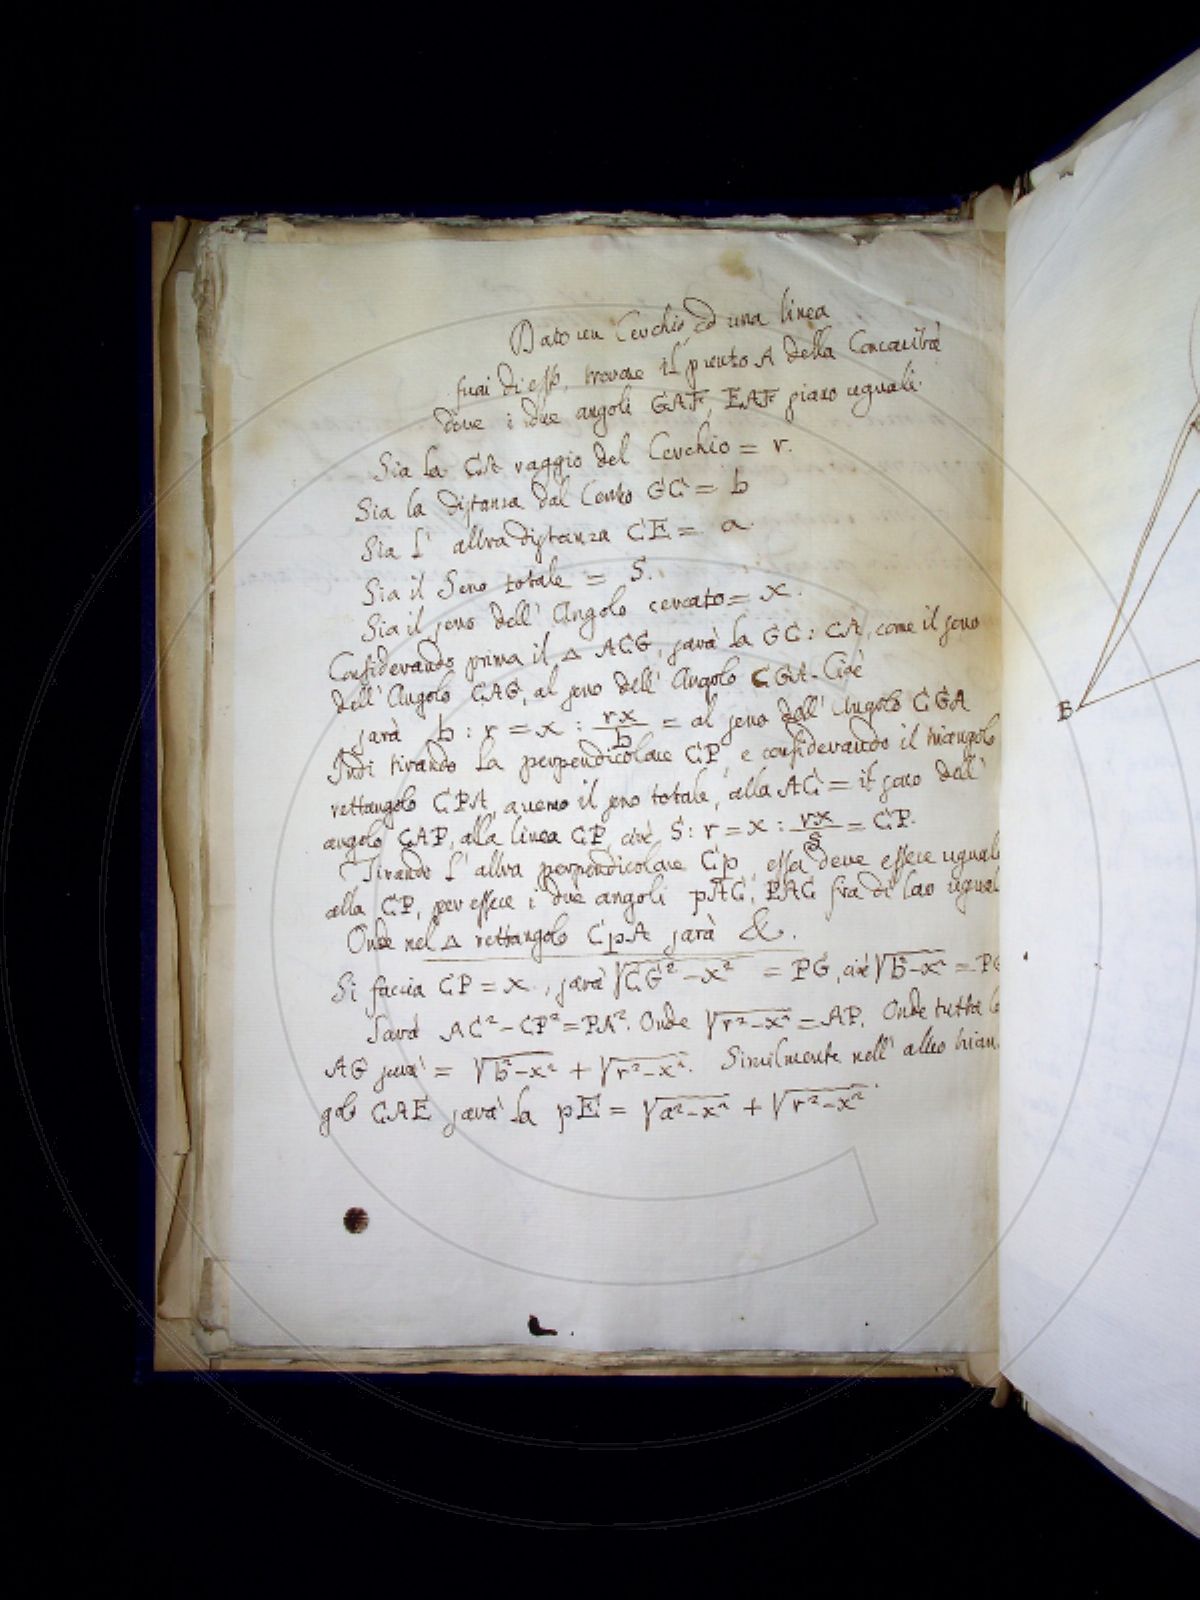 Dato un Cerchio, ed una linea
fuori di esso, trovare il punto A della Concavità
dove i due angoli GAF, EAF siano uguali.
Sia la CA raggio del Cerchio = r.
Sia la distanza dal Centro GC = b
Sia l' altra distanza CE = a.
Sia il Seno totale = S.
Sia il seno dell' Angolo cercato = x.
Considerando prima il Δ ACG, sarà la GC : CA, come il seno
dell' Angolo CAG, al seno dell' Angolo CGA. Cioè
sarà b : r = x : rx/b = al seno dell' Angolo CGA
Indi tirando la perpendicolare CP, e considerando il triangolo
rettangolo CPA, avremo il seno totale, alla AC = il seno dell'
angolo CAP, alla linea CP, cioè, S : r = x : rx/S = CP.
Tirando l' altra perpendicolare Cp, essa deve essere uguale
alla CP, per essere i due angoli pAC, PAC fra di loro uguali
Onde nel Δ rettangolo CpA sarà &.
Si faccia CP = x, sarà √CG²-x² = PG, cioè √b²-x² = PG
Sarà AC²-CP²=PA². Onde √r²-x² = AP. Onde tutta la
AG sarà = √b²-x² + √r²-x². Similmente nell' altro trian-
golo CAE sarà la pE = √a²-x² + √r²-x²
B